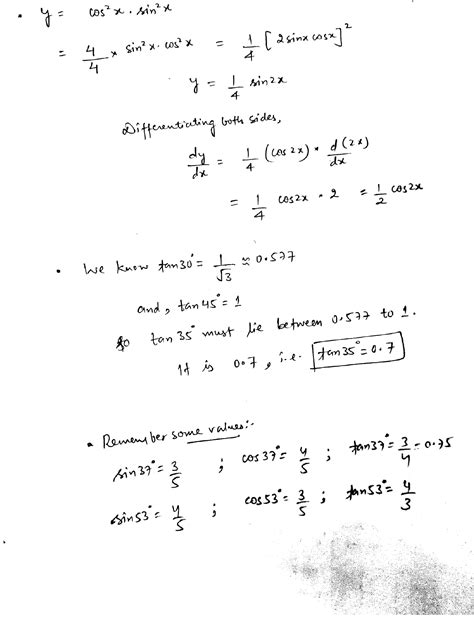 • y = cos²x · sin²x
= 4/4 × sin²x · cos²x = 1/4 [2sinx cosx]²
y = 1/4 sin2x
Differentiating both sides,
dy/dx = 1/4 (cos2x) · d(2x)/dx
= 1/4 cos2x · 2 = 1/2 cos2x
• We know tan30° = 1/√3 ≈ 0.577
and, tan45° = 1
So tan35° must lie between 0.577 to 1.
It is 0.7, i.e. tan35° = 0.7
• Remember some values:-
sin37° = 3/5 ; cos37° = 4/5 ; tan37° = 3/4 = 0.75
sin53° = 4/5 ; cos53° = 3/5 ; tan53° = 4/3